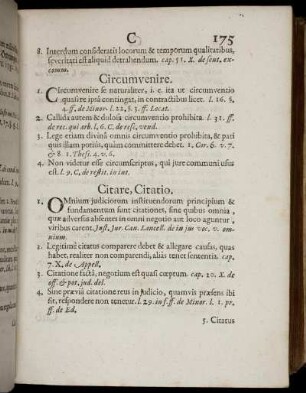 C 175
8. Interdum consideratis locorum & temporum qualitatibus,
severitati est aliquid detrahendum. cap. 51. X. de sent. ex-
comm.
Circumvenire.
1. Circumvenire se naturaliter, i. e. ita ut circumventio
quasi re ipsâ contingat, in contractibus licet. l. 16. §.
4. ff. de Minor. l. 22. §. 3. ff. Locat.
2. Callida autem & dolosa circumventio prohibita. l. 31. ff.
de rec. qui arb. l. 6. C. de resc. vend.
3. Lege etiam divinâ omnis circumventio prohibita, & pati
quis illam potiùs, quàm committere debet. 1. Cor. 6. v. 7.
& 8. 1. Thess. 4. v. 6.
4. Non videtur esse circumscriptus, qui jure communi usus
est. l. 9. C. de restit. in int.
Citare, Citatio,
1. OMnium judiciorum instituendorum principium &
fundamentum sunt citationes, sine quibus omnia,
quæ adversus absentem in omni negotio aut loco aguntur,
viribus carent. Inst. Jur. Can. Lancell. de in jus voc. v. om-
nium.
2. Legitimè citatus comparere debet & allegare causas, quas
habet. realiter non comparendi, aliàs tenet sententia. cap.
7. X. de Appell.
3. Citatione factâ, negotium est quasi cœptum. cap. 20. X. de
off. & pot. jud. del.
4. Sine præviâ citatione reus in judicio, quamvis præsens ibi
sit, respondere non tenetur. l. 29. in f. ff. de Minor. l. 1. pr.
ff. de Ed.
5. Citatus